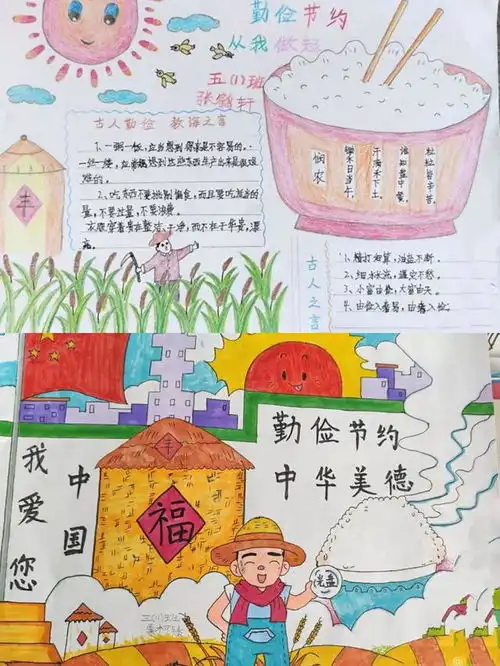 勤俭节约
从我做起
五(1)班
张鹤轩
丰
古人勤俭 教诲之言
1、一粥一饭,应当想到得来是不容易的。
一丝一缕,应常想到这些东西生产出来是很艰
难的。
2、吃东西不要挑剔偏食,而且要吃适当的
量,不要过量,不要浪费。
衣服穿着贵在整洁、干净,而不在于华贵、漂
亮。
悯农
锄禾日当午,
汗滴禾下土。
谁知盘中餐,
粒粒皆辛苦。
古人之言
1、精打细算,油盐不断。
2、细水长流,遇灾不愁。
3、小富由俭,大富由天。
4、由俭入奢易,由奢入俭
勤俭节约
中华美德
我爱您
中国
丰
福
光盘